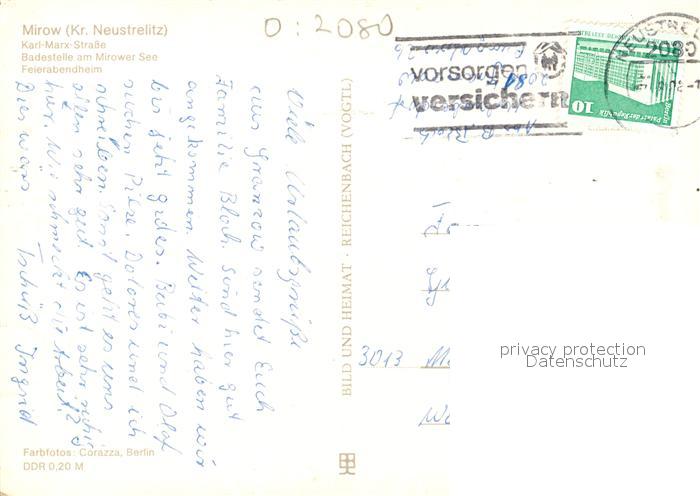 Mirow (Kr. Neustrelitz)
Karl-Marx-Straße
Badestelle am Mirower See
Feierabendheim
O: 2080
vorsorgen
versichern
NEUSTREL
2080
10
Palast der Republik
Berlin
Viele Urlaubsgrüße
aus Granzow sendet Euch
Familie Bloch. Sind hier gut
angekommen. Wetter haben wir
bis jetzt gutes. Bubi und Olaf
suchen Pilze. Dolores und ich
schreiben. Sonst geht es uns
allen sehr gut. Es ist sehr ruhig
hier. Wie schmeckt die Arbeit?
Bis dann Tschüß Ingrid
BILD UND HEIMAT · REICHENBACH (VOGTL)
3013 M
privacy protection
Datenschutz
Farbfotos: Corazza, Berlin
DDR 0,20 M